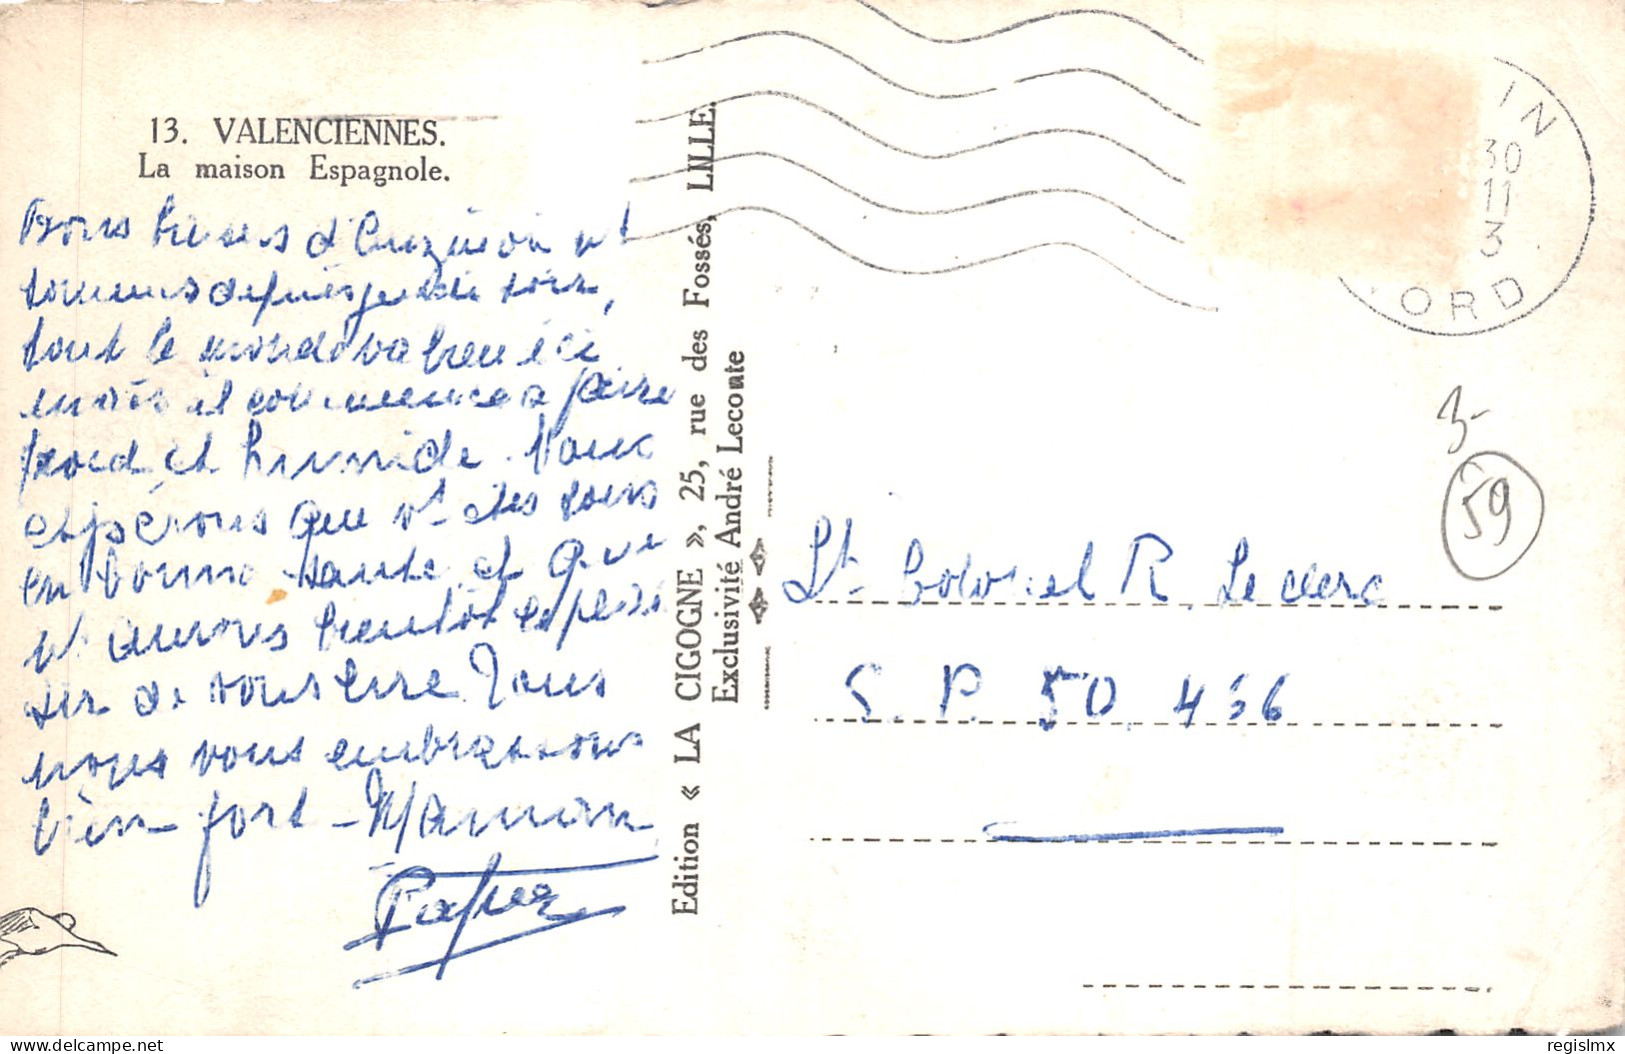 13. VALENCIENNES.
La maison Espagnole.
Bons baisers d'Anzin où nt
sommes depuis jeudi soir,
tout le monde va bien ici
mais il commence a faire
froid et humide. Nous
espérons que vt êtes tous
en bonne santé et que
nt aurons bientôt le plaisir
de vous lire Tous
nous vous embrassons
bien fort - Maman
Papa
Edition « LA CIGOGNE », 25, rue des Fossés, LILLE.
Exclusivité André Leconte
IN
30
11
3
ORD
3-
59
Lt Colonel R. Leclerc
S. P. 50.456
regislmx